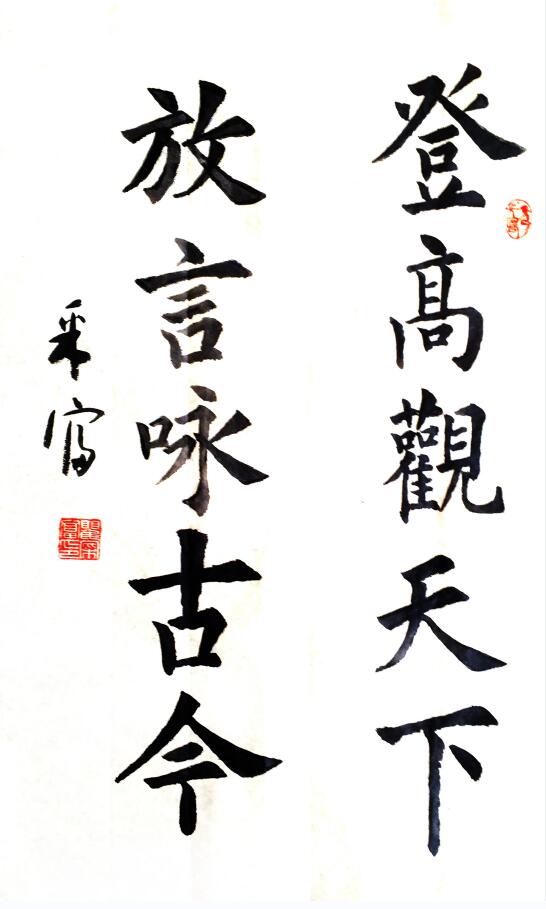 登高觀天下
放言咏古今
采富